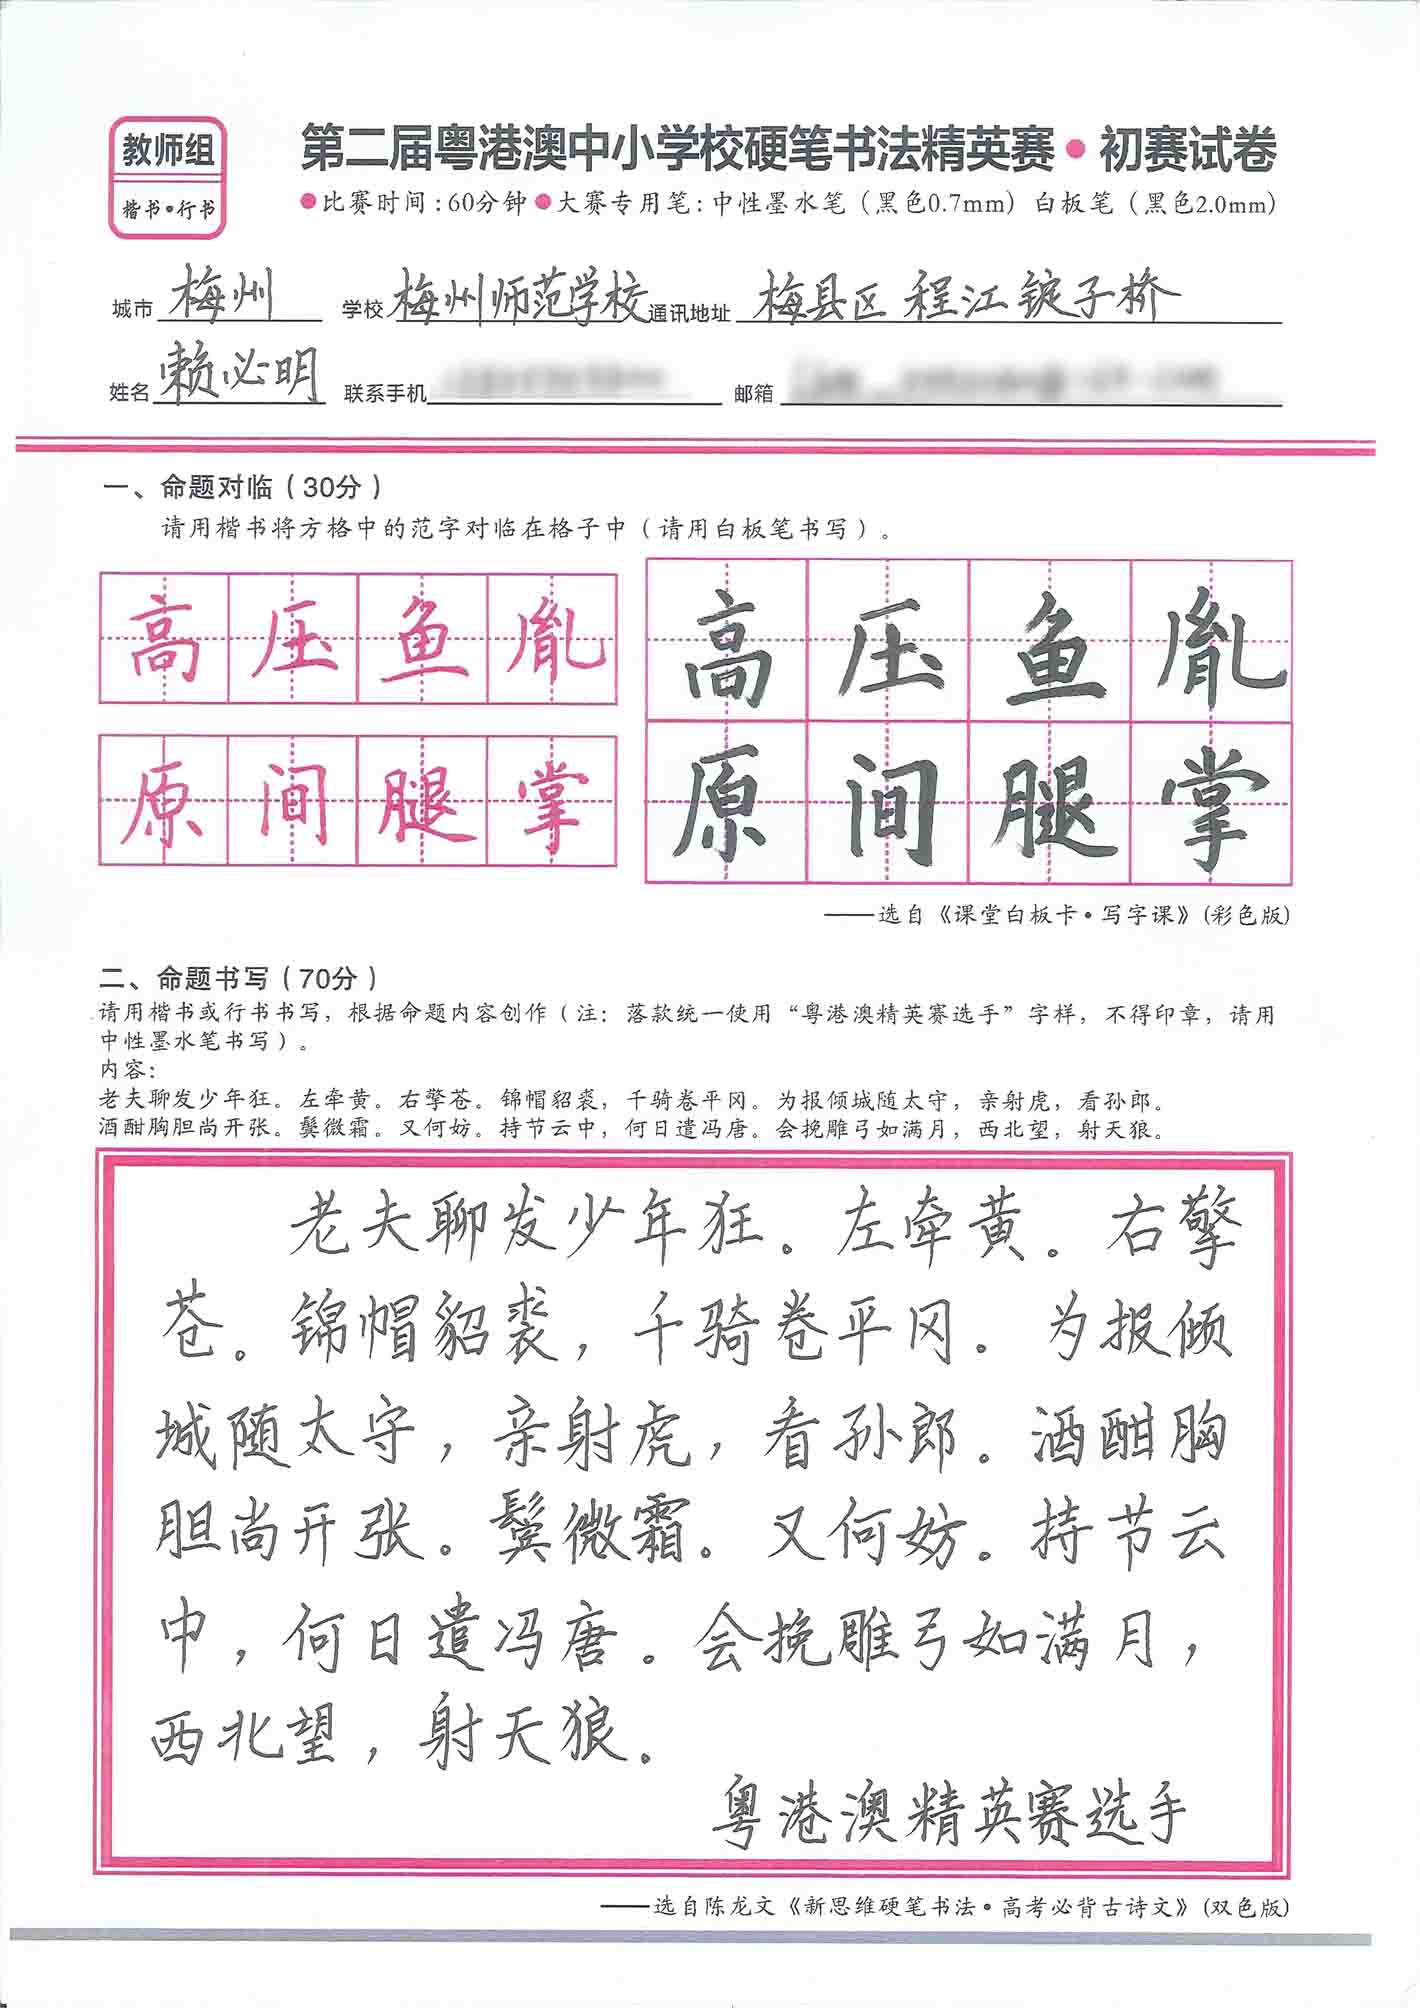 教师组
楷书·行书
第二届粤港澳中小学校硬笔书法精英赛·初赛试卷
●比赛时间:60分钟●大赛专用笔:中性墨水笔(黑色0.7mm) 白板笔(黑色2.0mm)
城市 梅州 学校 梅州师范学校 通讯地址 梅县区程江锭子桥
姓名 赖必明 联系手机 邮箱
一、命题对临(30分)
请用楷书将方格中的范字对临在格子中(请用白板笔书写)。
高压鱼胤
原间腿掌
高压鱼胤
原间腿掌
——选自《课堂白板卡·写字课》(彩色版)
二、命题书写(70分)
请用楷书或行书书写,根据命题内容创作(注:落款统一使用“粤港澳精英赛选手”字样,不得印章,请用
中性墨水笔书写)。
内容:
老夫聊发少年狂。左牵黄。右擎苍。锦帽貂裘,千骑卷平冈。为报倾城随太守,亲射虎,看孙郎。
酒酣胸胆尚开张。鬓微霜。又何妨。持节云中,何日遣冯唐。会挽雕弓如满月,西北望,射天狼。
老夫聊发少年狂。左牵黄。右擎
苍。锦帽貂裘,千骑卷平冈。为报倾
城随太守,亲射虎,看孙郎。酒酣胸
胆尚开张。鬓微霜。又何妨。持节云
中,何日遣冯唐。会挽雕弓如满月,
西北望,射天狼。
粤港澳精英赛选手
——选自陈龙文《新思维硬笔书法·高考必背古诗文》(双色版)